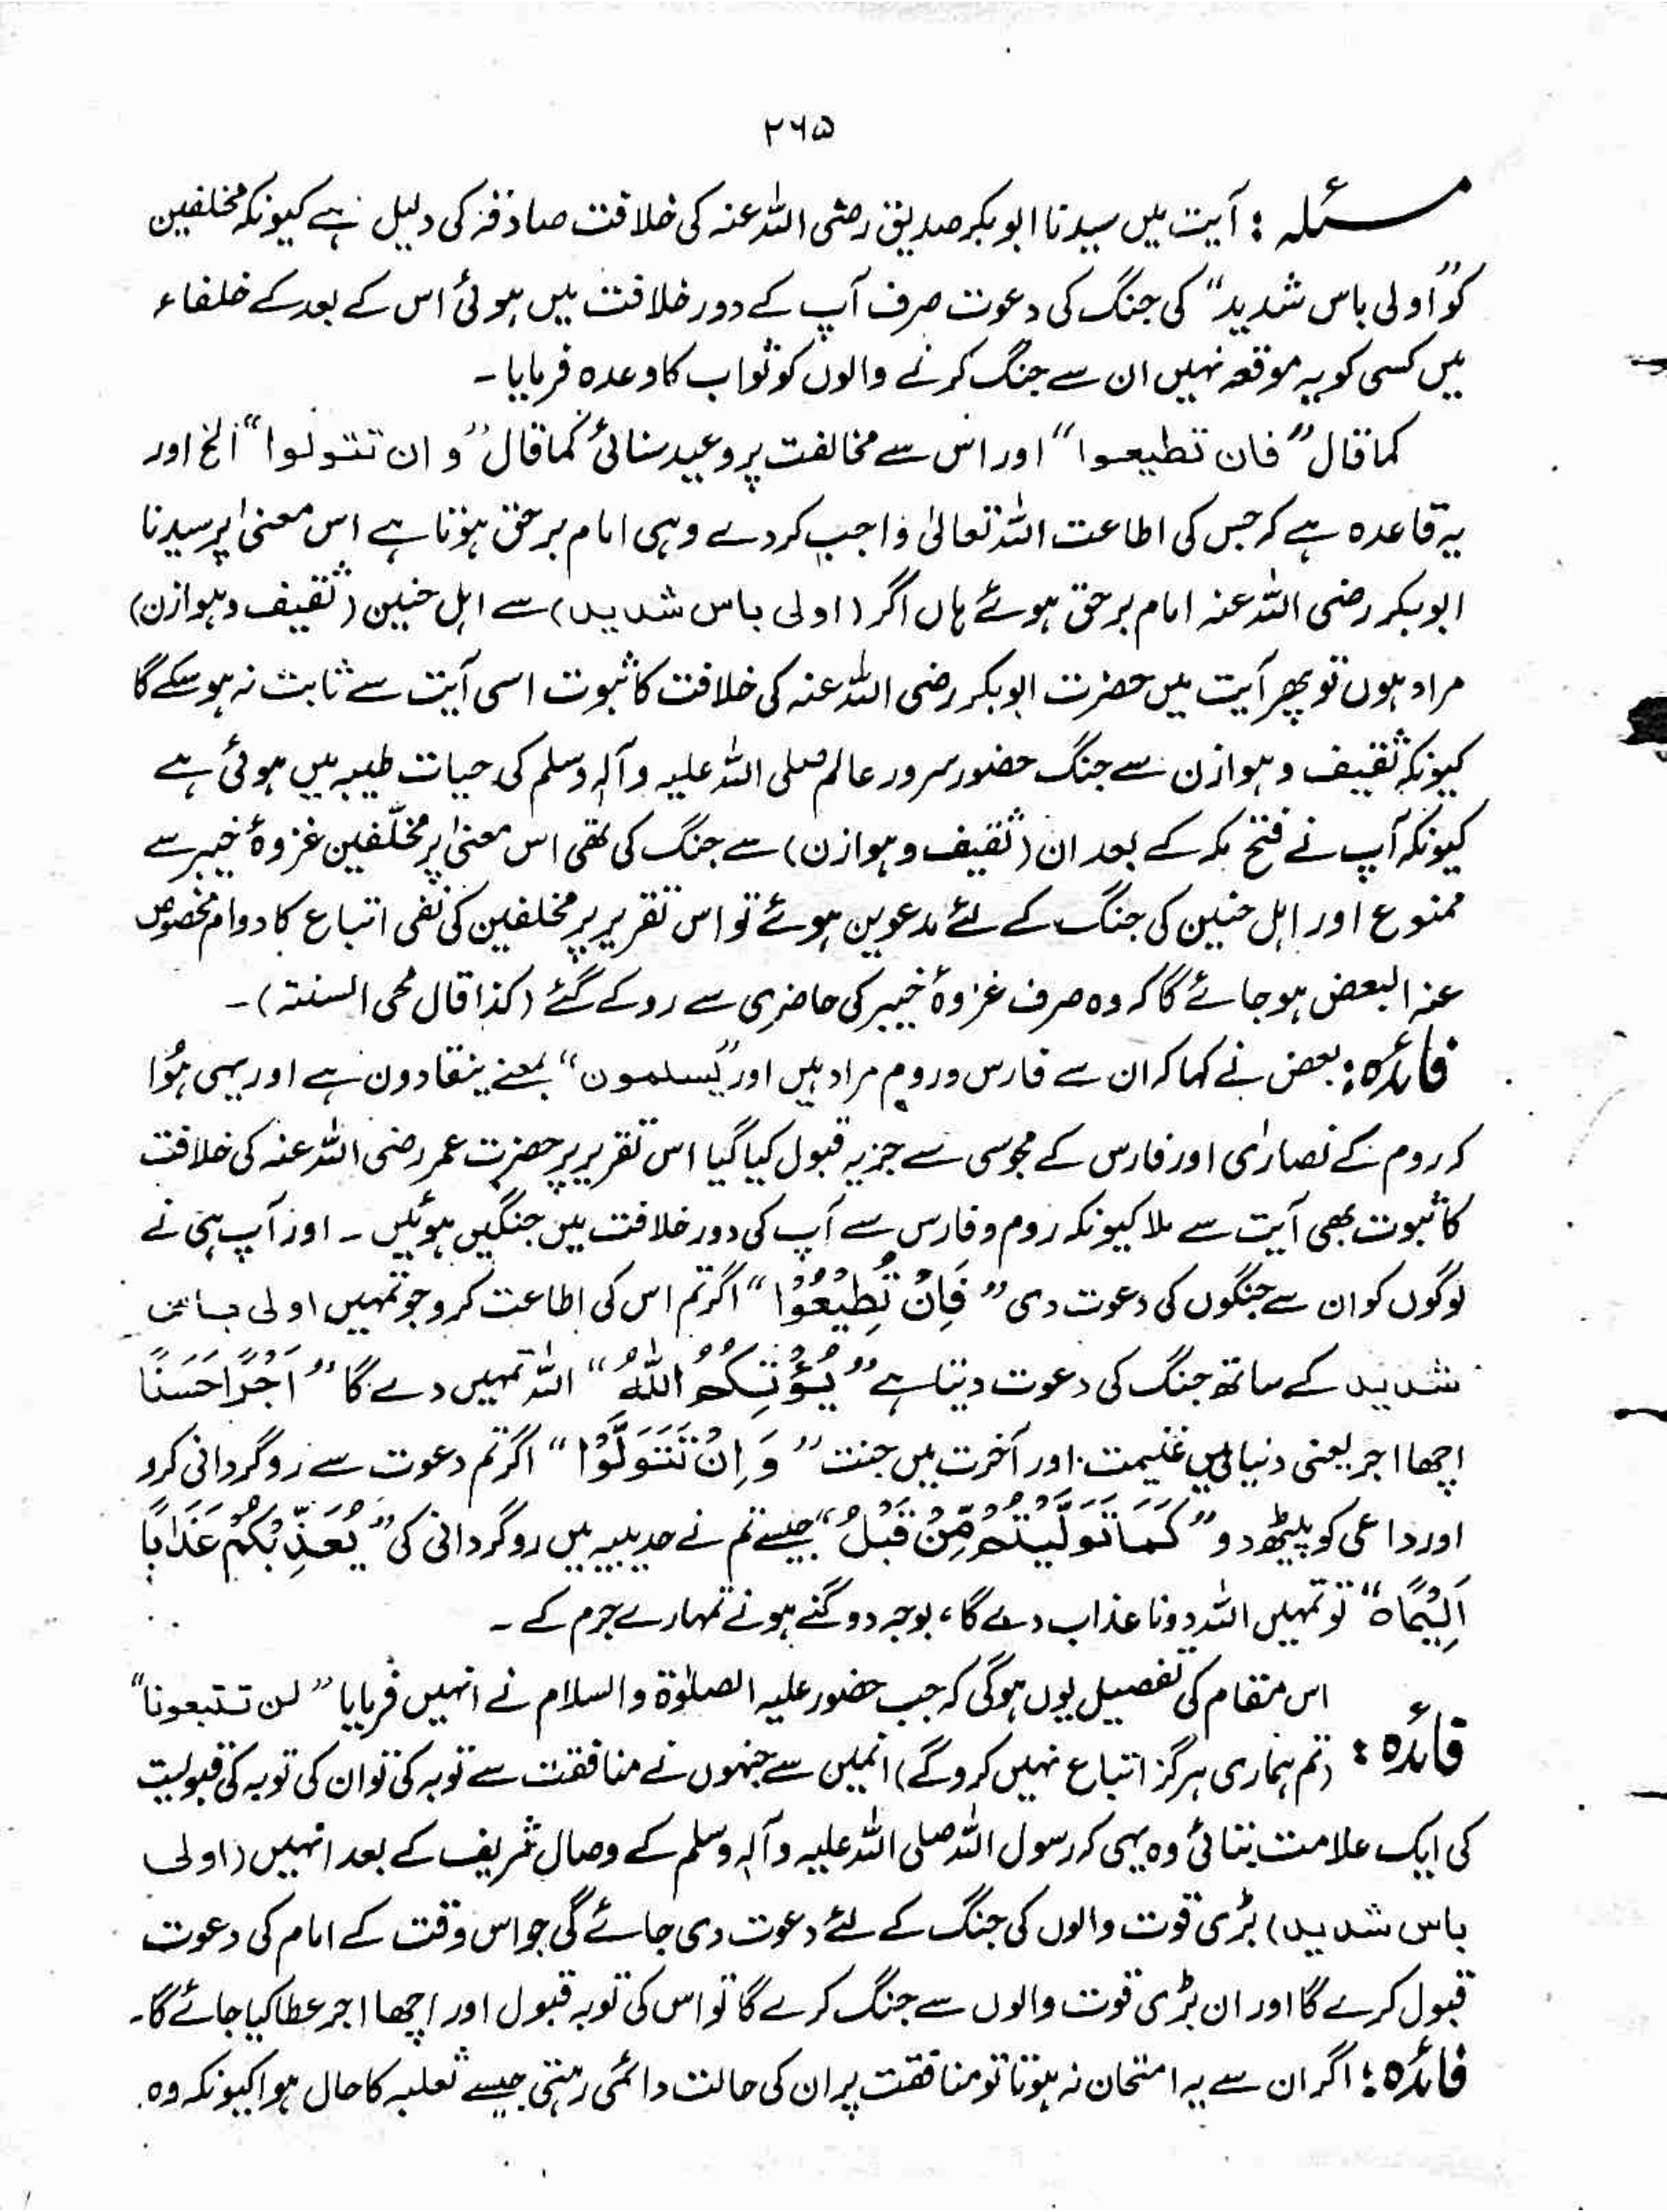 ۲۶۵
مسئلہ : آیت میں سیدنا ابو بکر صدیق رضی اللہ عنہ کی خلافت صادقہ کی دلیل ہے کیونکہ مخلفین
کو "اولی باس شدید" کی جنگ کی دعوت صرف آپ کے دور خلافت میں ہوئی اس کے بعد کے خلفاء
میں کسی کو یہ موقعہ نہیں ان سے جنگ کرنے والوں کو ثواب کا وعدہ فرمایا۔
کما قال "فان تطیعوا" اور اس سے مخالفت پر وعید سنائی کما قال "و ان تتولوا" الخ اور
یہ قاعدہ ہے کہ جس کی اطاعت اللہ تعالیٰ واجب کر دے وہی امام برحق ہوتا ہے اس معنیٰ پر سیدنا
ابوبکر رضی اللہ عنہ امام برحق ہوئے ہاں اگر (اولی باس شدید) سے اہل حنین (ثقیف و ہوازن)
مراد ہوں تو پھر آیت میں حضرت ابوبکر رضی اللہ عنہ کی خلافت کا ثبوت اسی آیت سے ثابت نہ ہو سکے گا
کیونکہ ثقیف و ہوازن سے جنگ حضور سرور عالم صلی اللہ علیہ وآلہ وسلم کی حیات طیبہ میں ہوئی ہے
کیونکہ آپ نے فتح مکہ کے بعد ان (ثقیف و ہوازن) سے جنگ کی تھی اس معنیٰ پر مخلّفین غزوۂ خیبر سے
ممنوع اور اہل حنین کی جنگ کے لئے مدعوین ہوئے تو اس تقریر پر مخلفین کی نفی اتباع کا دوام مخصوص
عنہ البعض ہو جائے گا کہ وہ صرف غزوۂ خیبر کی حاضری سے روکے گئے (کذا قال محی السنتہ)۔
فائدہ : بعض نے کہا کہ ان سے فارس و روم مراد ہیں اور "یسلمون" بمعنے ینقادون ہے اور یہی ہُوا
کہ روم کے نصاریٰ اور فارس کے مجوسی سے جزیہ قبول کیا گیا اس تقریر پر حضرت عمر رضی اللہ عنہ کی خلافت
کا ثبوت بھی آیت سے ملا کیونکہ روم و فارس سے آپ کی دور خلافت میں جنگیں ہوئیں۔ اور آپ ہی نے
لوگوں کو ان سے جنگوں کی دعوت دی "فَاِنْ تُطِیْعُوْا" اگر تم اس کی اطاعت کرو جو تمہیں اولی باس
شدید کے ساتھ جنگ کی دعوت دیتا ہے "یُؤْتِکُمُ اللّٰهُ" اللہ تمہیں دے گا "اَجْرًا حَسَنًا
اچھا اجر یعنی دنیا میں غنیمت اور آخرت میں جنت "وَ اِنْ تَتَوَلَّوْا" اگر تم دعوت سے روگردانی کرو
اور داعی کو پیٹھ دو "کَمَا تَوَلَّیْتُمْ مِّنْ قَبْلُ" جیسے تم نے حدیبیہ میں روگردانی کی "یُعَذِّبْکُمْ عَذَابًا
اَلِیْمًاہ" تو تمہیں اللہ دونا عذاب دے گا، بوجہ دوگنے ہونے تمہارے جرم کے۔
اس مقام کی تفصیل یوں ہوگی کہ جب حضور علیہ الصلوٰۃ والسلام نے انہیں فرمایا "لن تتبعونا"
فائدہ : (تم ہماری ہرگز اتباع نہیں کرو گے) انمیں سے جنہوں نے منافقت سے توبہ کی تو ان کی توبہ کی قبولیت
کی ایک علامت بتائی وہ یہی کہ رسول اللہ صلی اللہ علیہ وآلہ وسلم کے وصال شریف کے بعد انہیں (اولی
باس شدید) بڑی قوت والوں کی جنگ کے لئے دعوت دی جائے گی جو اس وقت کے امام کی دعوت
قبول کرے گا اور ان بڑی قوت والوں سے جنگ کرے گا تو اس کی توبہ قبول اور اچھا اجر عطا کیا جائے گا۔
فائدہ : اگر ان سے یہ امتحان نہ ہوتا تو منافقت پر ان کی حالت دائمی رہتی جیسے ثعلبہ کا حال ہوا کیونکہ وہ